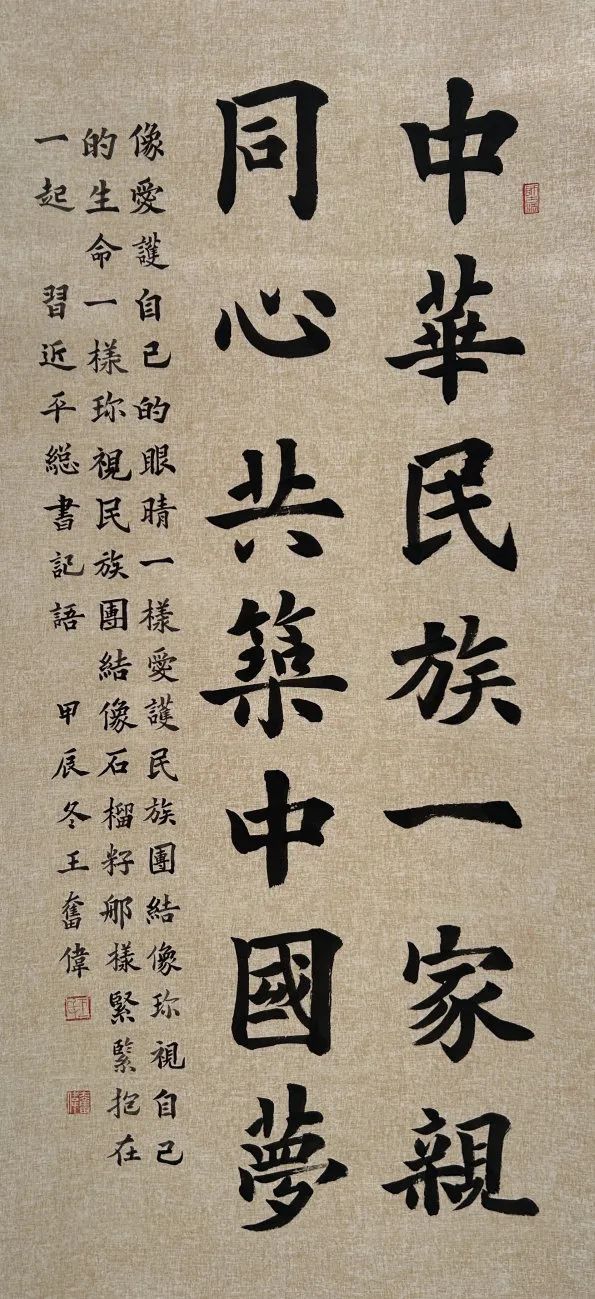 中華民族一家親
同心共築中國夢
像愛護自己的眼睛一樣愛護民族團結像珎視自己
的生命一樣珎視民族團結像石榴籽那樣緊緊抱在
一起 習近平緫書記語 甲辰冬王奮偉